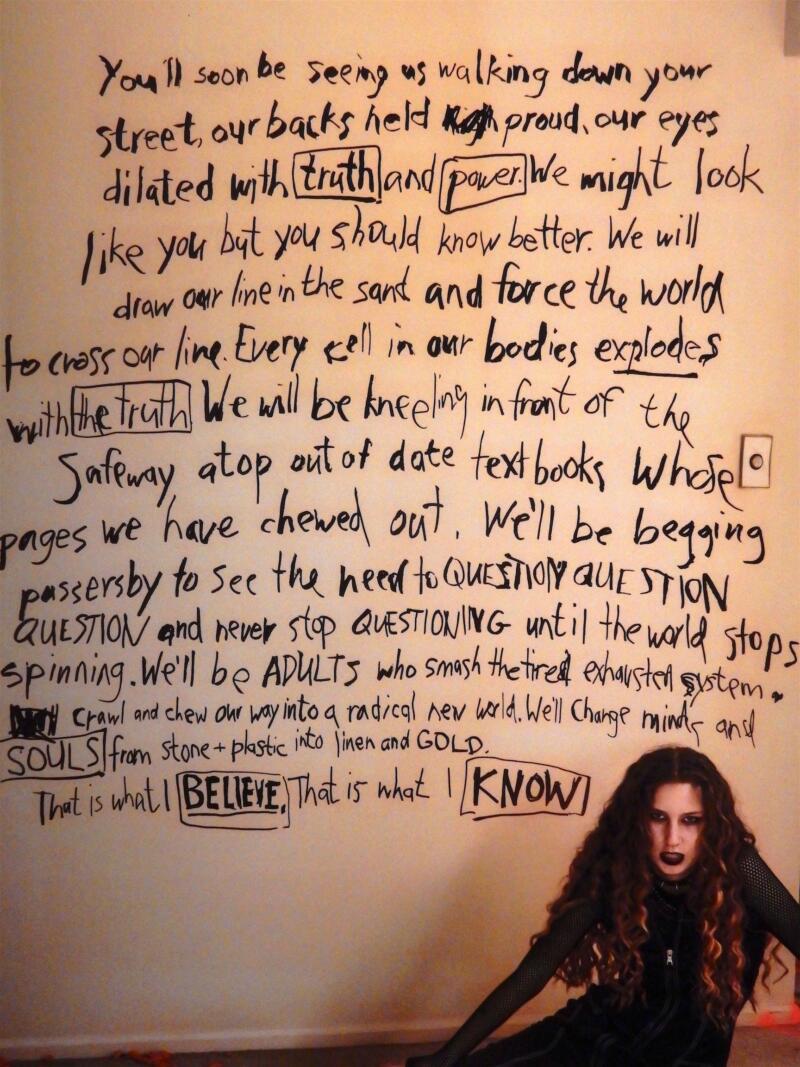 You'll soon be seeing us walking down your
street, our backs held proud, our eyes
dilated with truth and power. We might look
like you but you should know better. We will
draw our line in the sand and force the world
to cross our line. Every cell in our bodies explodes
with the truth We will be kneeling in front of the
Safeway atop out of date textbooks whose
pages we have chewed out. We'll be begging
passersby to see the need to QUESTION QUESTION
QUESTION and never stop QUESTIONING until the world stops
spinning. We'll be ADULTS who smash the tired exhausted system.
Crawl and chew our way into a radical new world. We'll Change minds and
SOULS from stone + plastic into linen and GOLD.
That is what I BELIEVE. That is what I KNOW